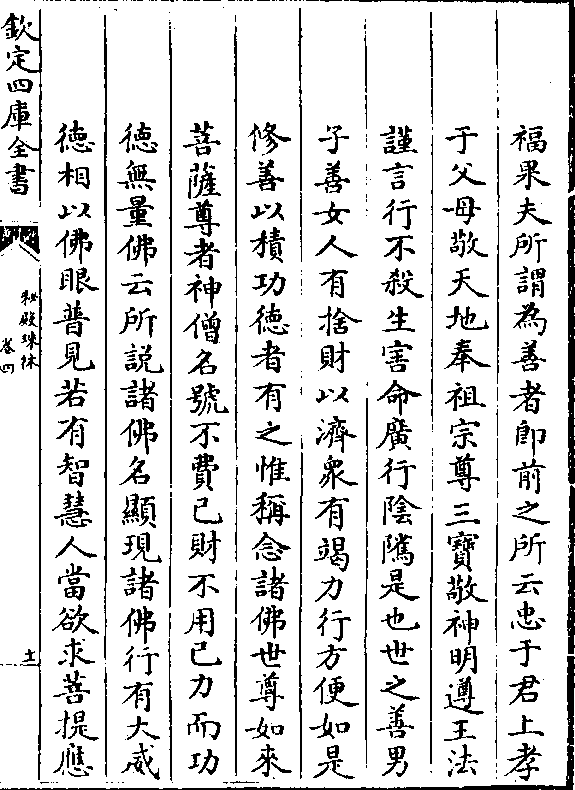 福果夫所謂為善者即前之所云忠于君上孝
于父母敬天地奉祖宗尊三寶敬神明遵王法
謹言行不殺生害命廣行陰隲是也世之善男
子善女人有捨財以濟衆有竭力行方便如是
修善以積功德者有之惟稱念諸佛世尊如來
菩薩尊者神僧名號不費已財不用已力而功
德無量佛云所説諸佛名顯現諸佛行有大威
德相以佛眼普見若有智慧人當欲求菩提應
欽定四庫全書
秘殿珠林
卷四
十一